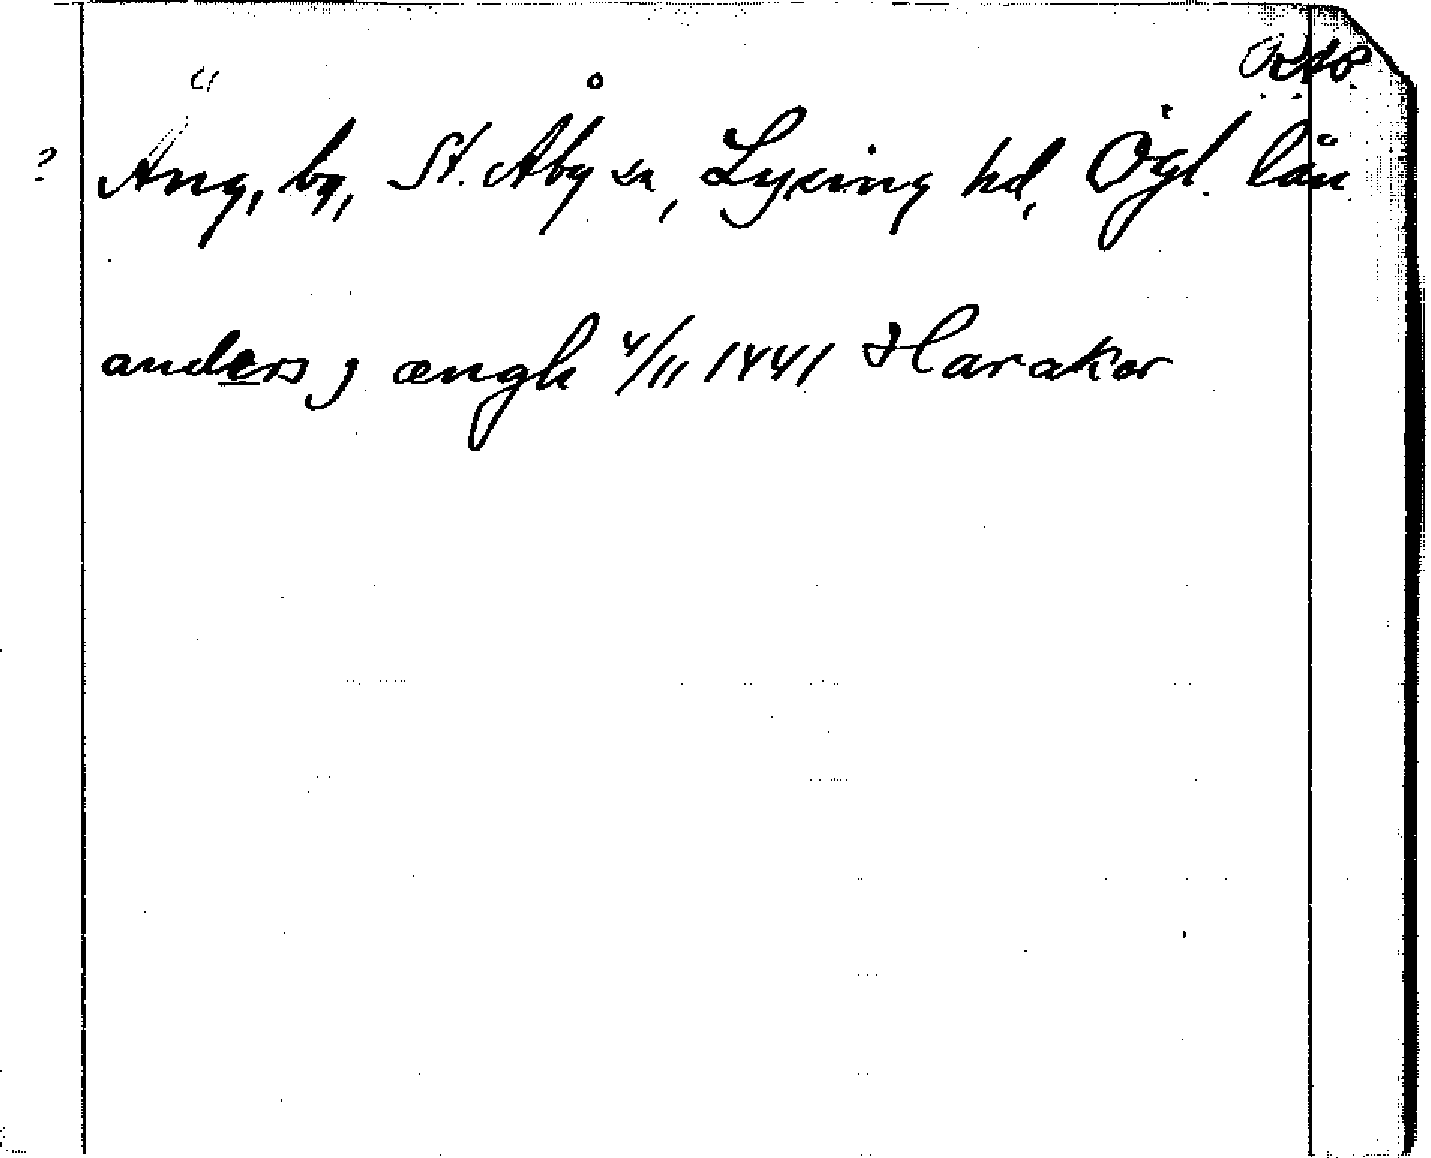 ? Äng, by, St. Åby sn, Lysing hd, Ögl. län
anders j ængh 4/11 1441 Haraker